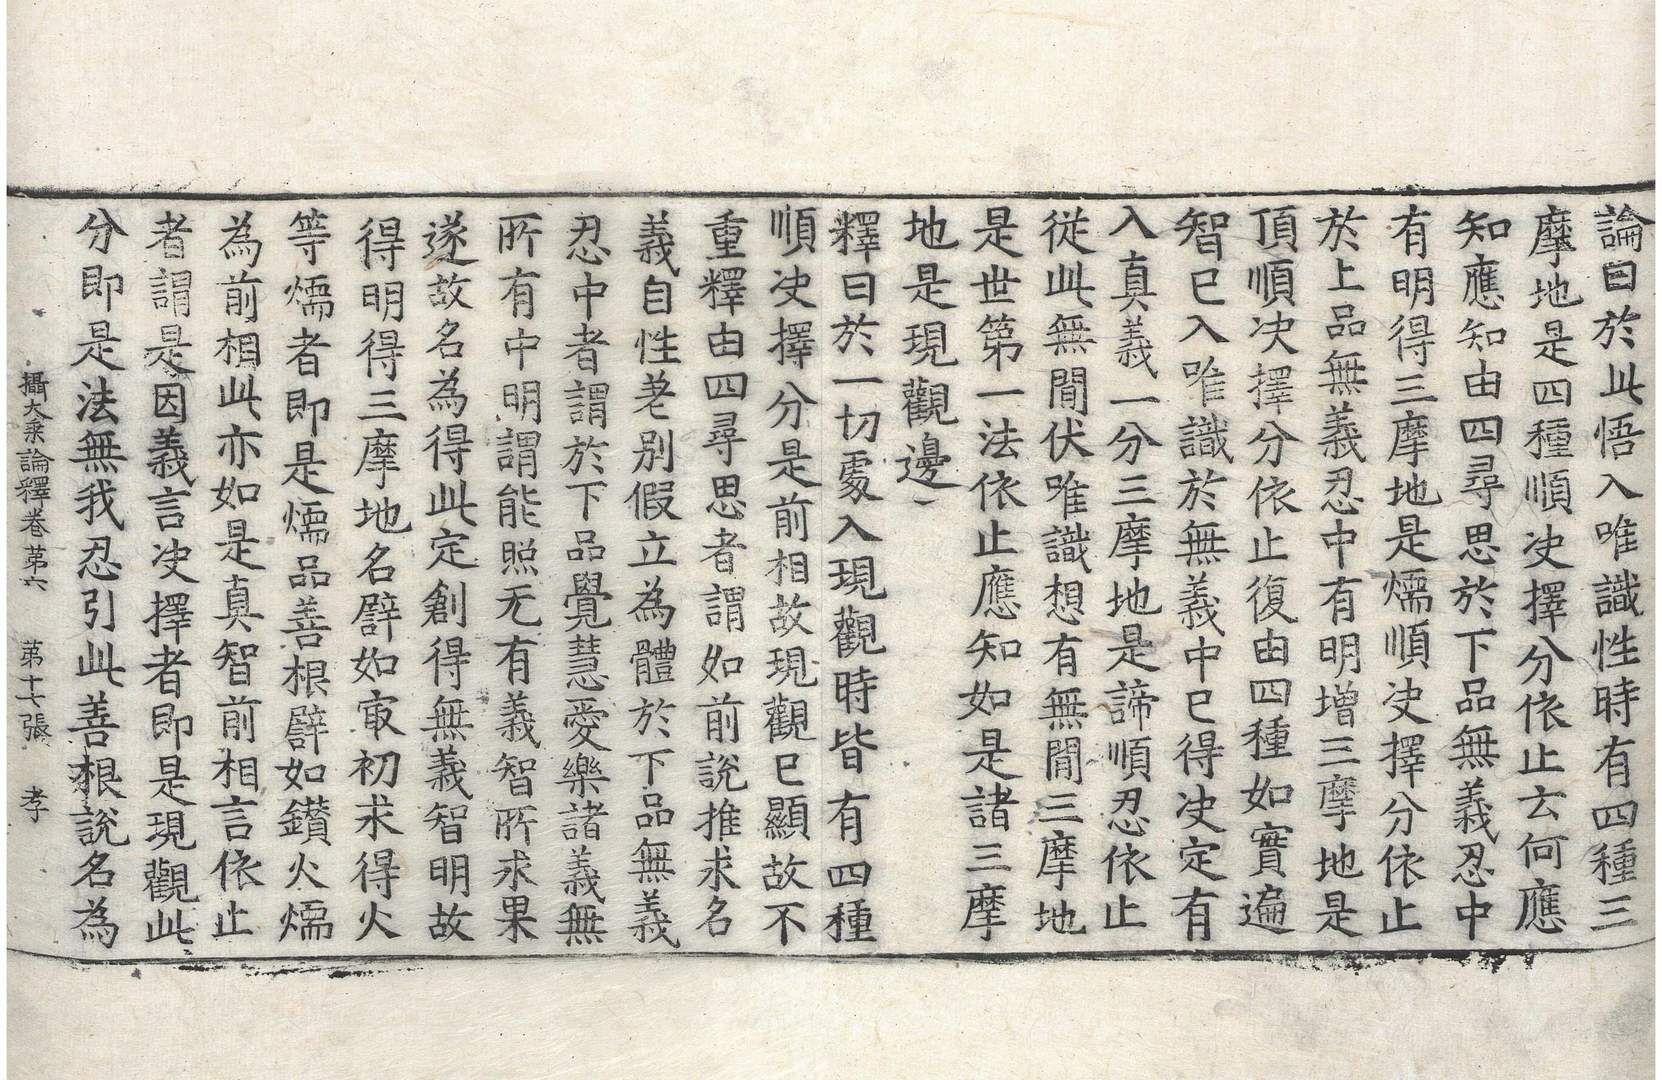 論曰於此悟入唯識性時有四種三
摩地是四種順决擇分依止云何應
知應知由四尋思於下品無義忍中
有明得三摩地是煗順决擇分依止
於上品無義忍中有明增三摩地是
頂順决擇分依止復由四種如實遍
智已入唯識於無義中已得决定有
入真義一分三摩地是諦順忍依止
從此無間伏唯識想有無間三摩地
是世第一法依止應知如是諸三摩
地是現觀邊
釋曰於一切處入現觀時皆有四種
順决擇分是前相故現觀已顯故不
重釋由四尋思者謂如前說推求名
義自性差别假立為體於下品無義
忍中者謂於下品覺慧愛樂諸義無
所有中明謂能照无有義智所求果
遂故名為得此定創得無義智明故
得明得三摩地名譬如㝡初求得火
等煗者即是煗品善根譬如鑚火煗
為前相此亦如是真智前相言依止
者謂是因義言决擇者即是現觀此
分即是法無我忍引此善根說名為
攝大乗論釋卷苐六　苐十七張　孝